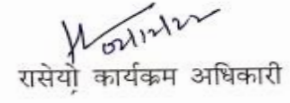 रासेयो कार्यक्रम अधिकारी